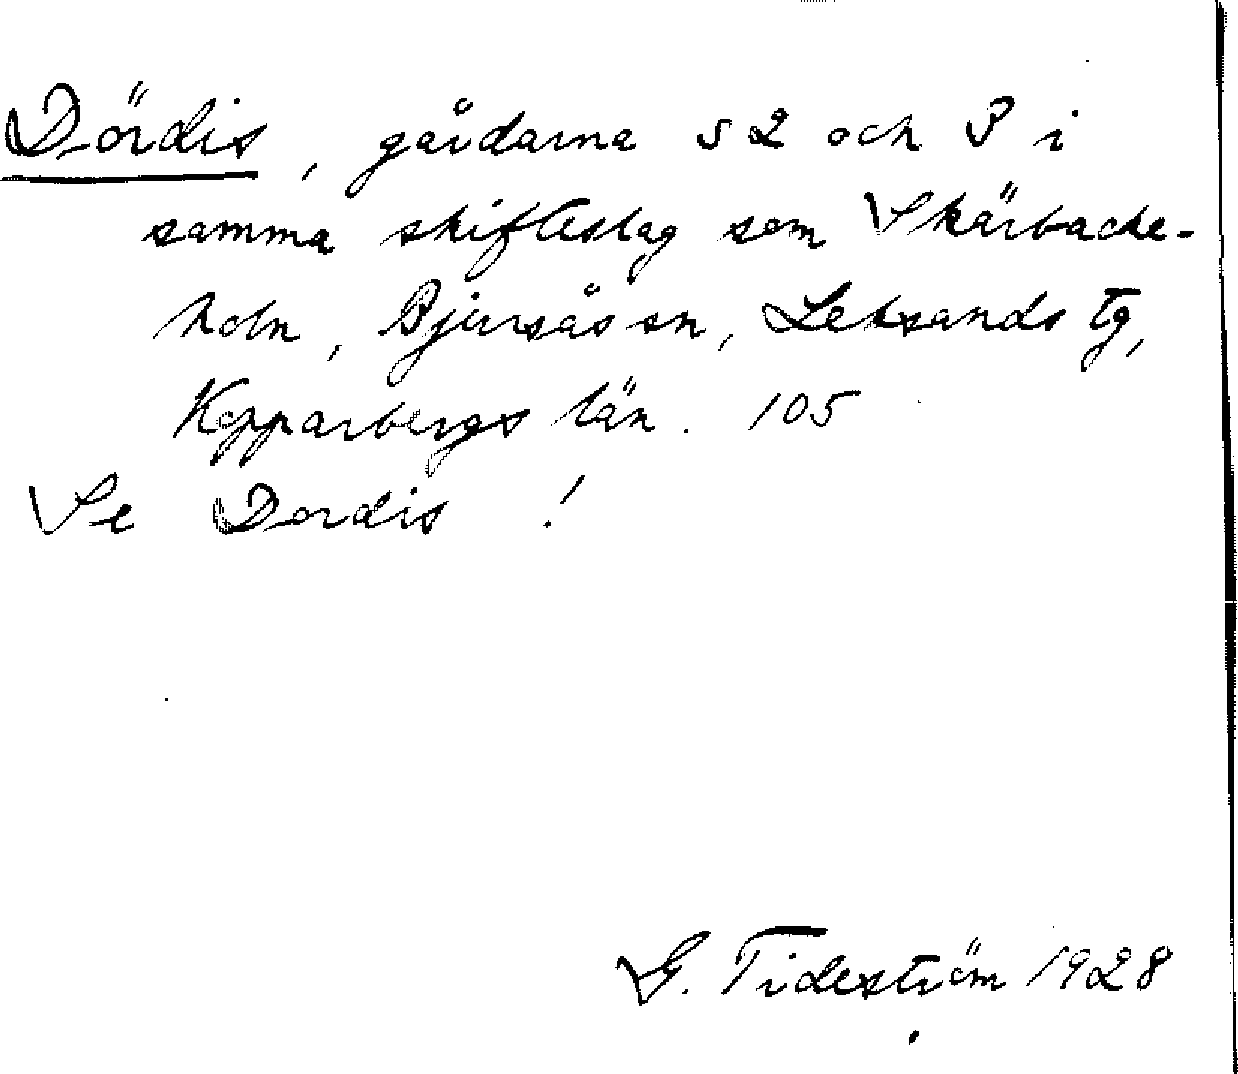 Dördis, gårdarna 52 och P i
samma skifteslag som Skärbacke-
holn, Bjursås sn, Leksands tg,
Kopparbergs län. 105
Se Dordis!
G. Tideström 1928